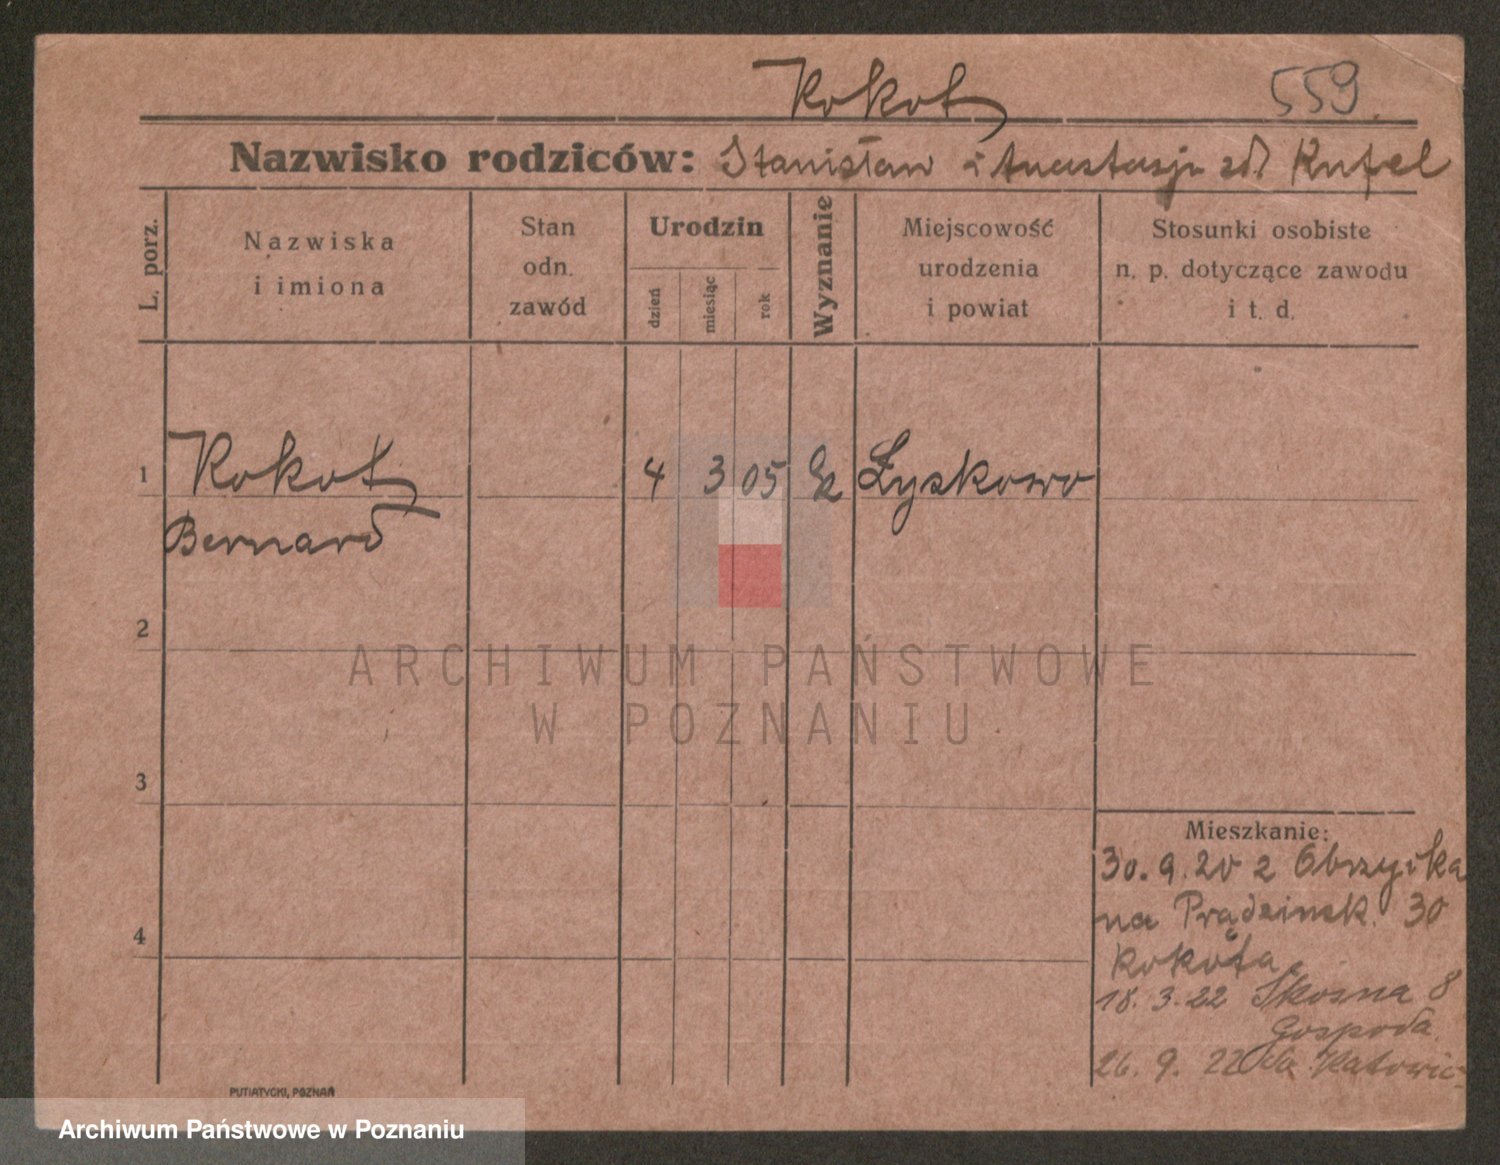 Kokot 559.
Nazwisko rodziców: Stanisław i Anastasja zd. Kufel
L. porz.
Nazwiska
i imiona
Stan
odn.
zawód
Urodzin
dzień
miesiąc
rok
Wyznanie
Miejscowość
urodzenia
i powiat
Stosunki osobiste
n. p. dotyczące zawodu
i t. d.
1 Kokot 4 3 05 Łyskowo
Bernard
2
ARCHIWUM PAŃSTWOWE
W POZNANIU
3
Mieszkanie:
30. 9. 20 z Obrzycka
na Prądzińsk. 30
4
Kokota
18. 3. 22 Skośna 8
Gospoda
26. 9. 22 do Katowic
PUTIATYCKI, POZNAŃ
Archiwum Państwowe w Poznaniu